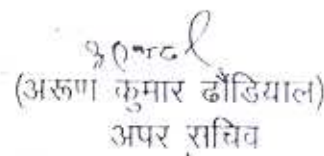 (अरूण कुमार ढौंडियाल)
अपर सचिव